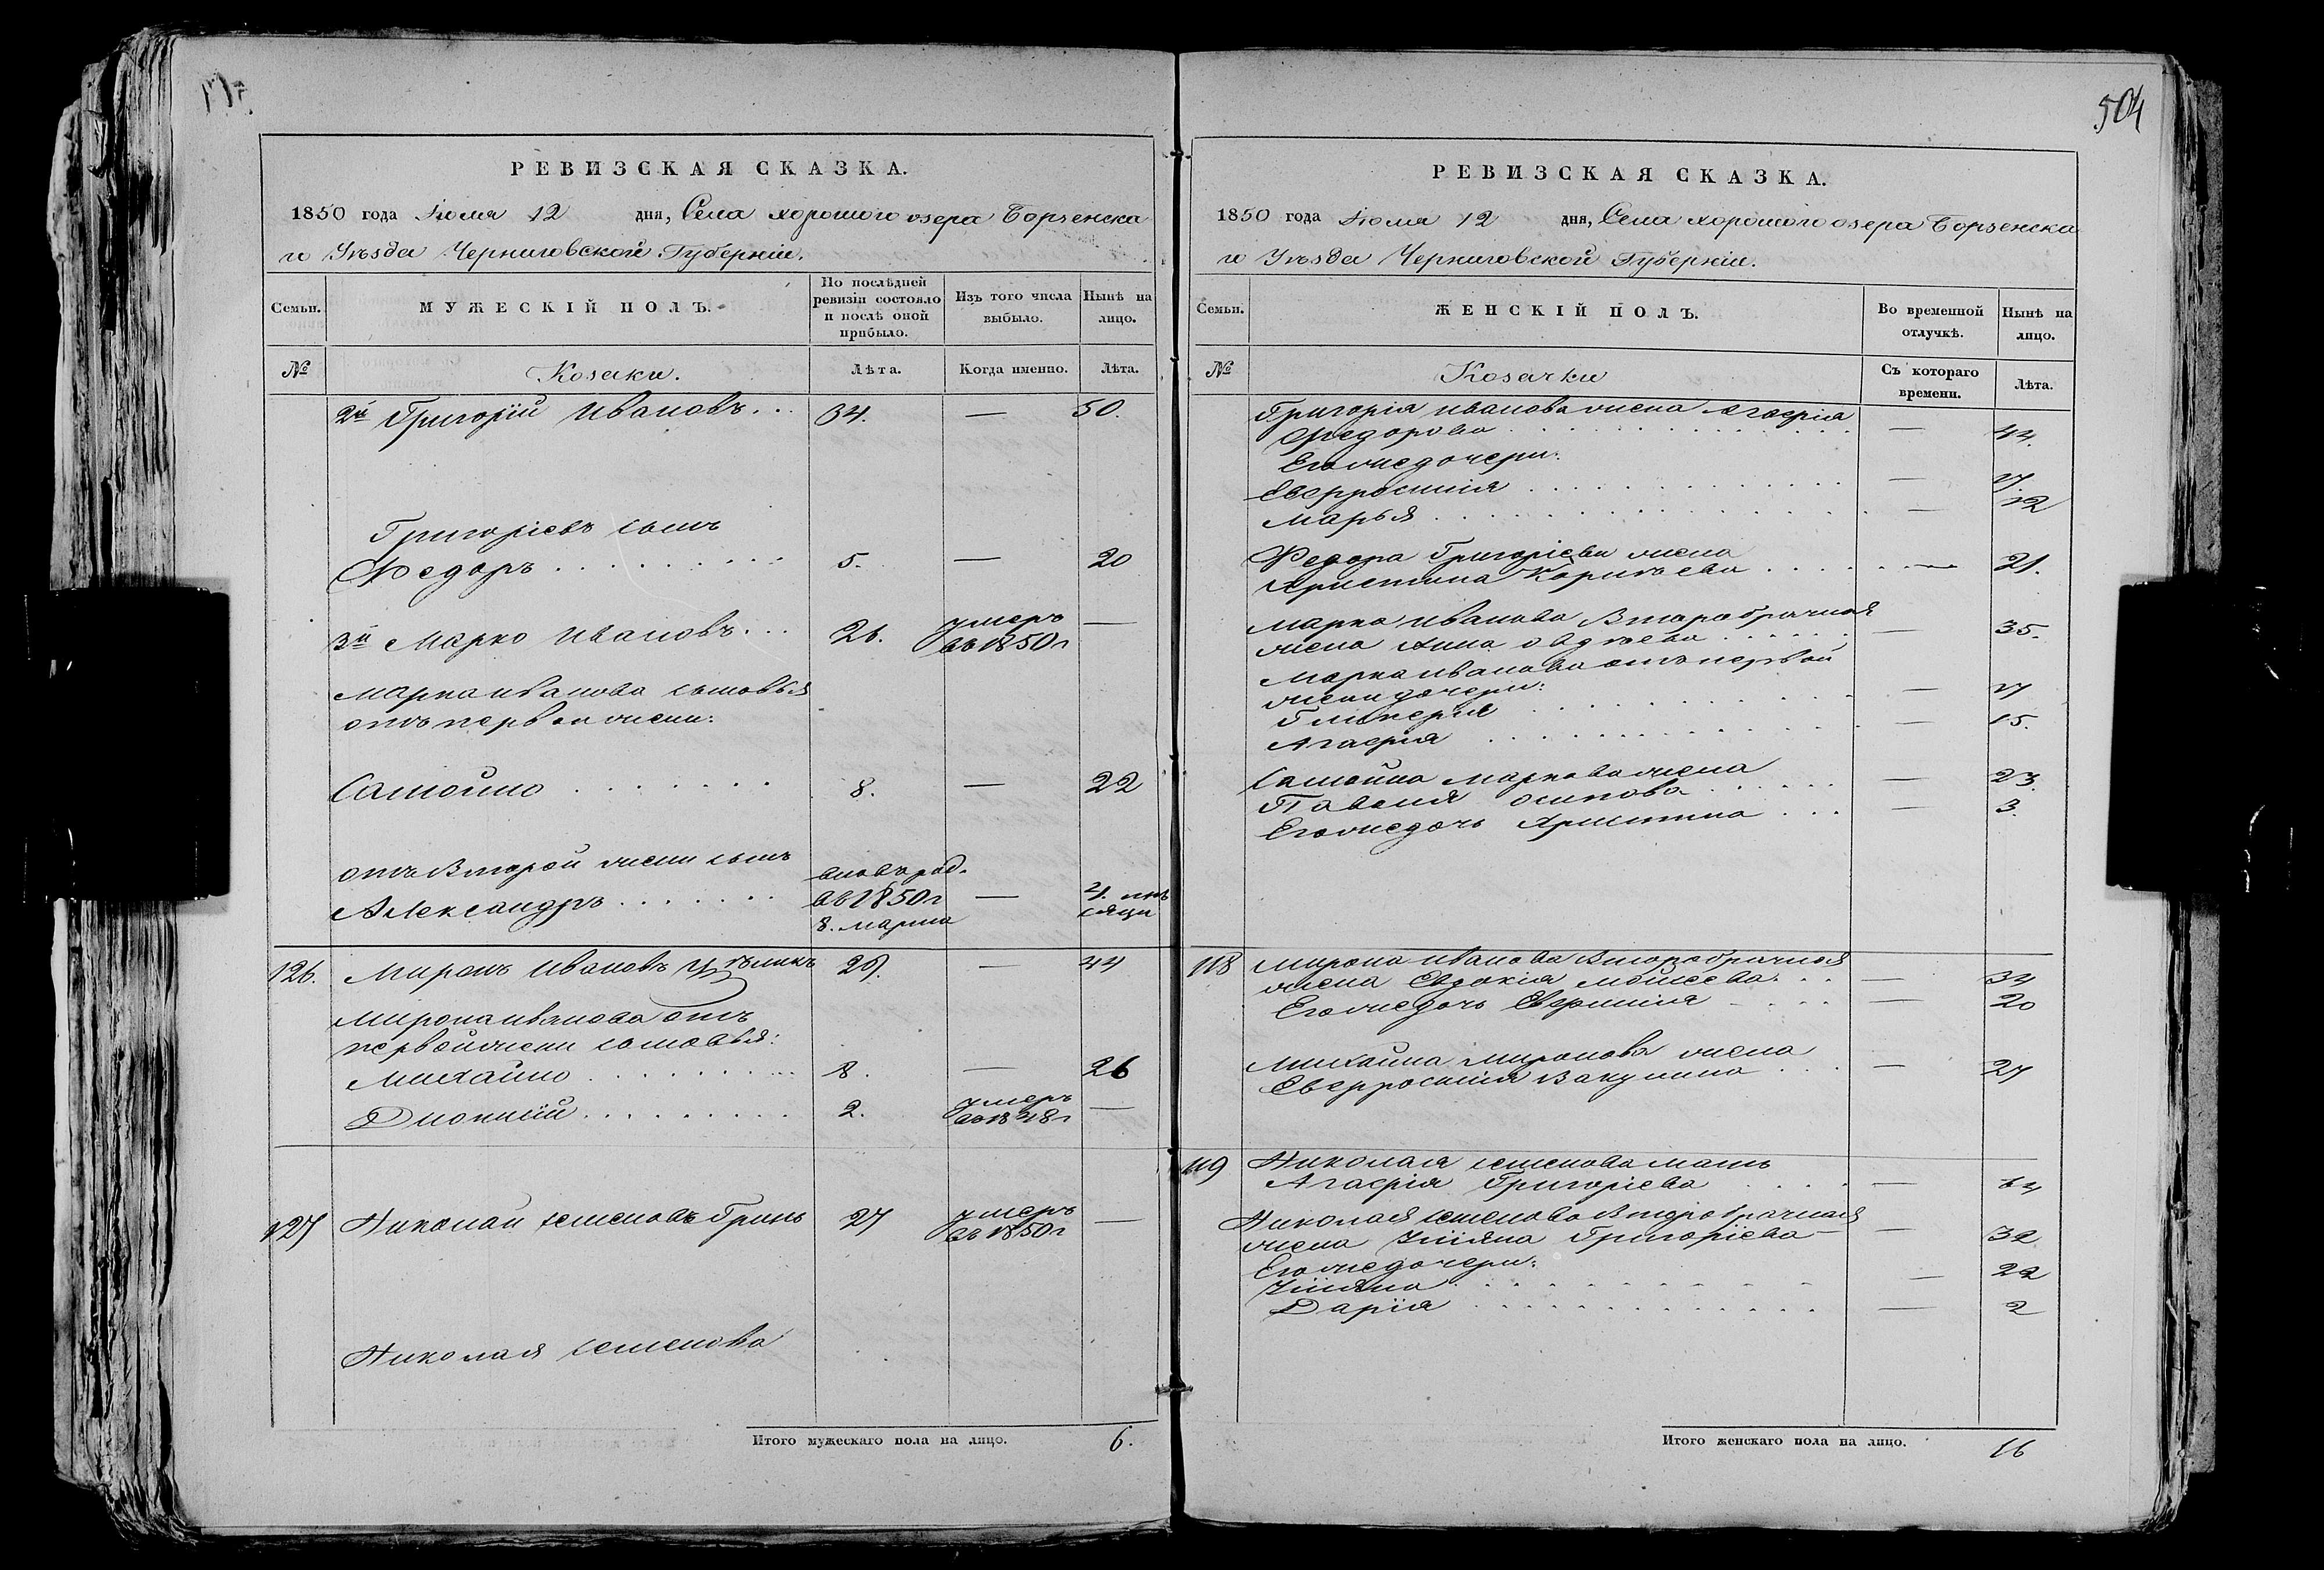 РЕВИЗСКАЯ СКАЗКА.
1850 года Июля 12 дня, Села хорошого озера Борзенска
го Уѣзда Черниговской Губерніи.
Семьи. МУЖЕСКІЙ ПОЛЪ. По послѣдней ревизіи состояло и послѣ оной прибыло. Изъ того числа выбыло. Нынѣ на лицо.
№ Козаки. Лѣта. Когда именно. Лѣта.
2й Григорій Ивановъ... 34. — 50.
Григоріевъ сынъ
Федоръ 5. — 20
3й Марко Ивановъ... 26. умеръ —
въ 1850 г
Марка Иванова сыновья
отъ первой жены:
Самойло 8. — 22
отъ Второй жены сынъ вновь род.
Александръ въ 1850 г — 4. мѣ
8. марта сяци
126. Миронъ Ивановъ 29. — 44
Мирона Иванова отъ
первой жены сыновья:
Михайло 8. — 26
Дионисій 2. умеръ —
въ 1848 г
127 Николай Семеновъ Гринь 27 умеръ —
въ 1850 г
Николая Семенова
Итого мужескаго пола на лицо. 6.
504
РЕВИЗСКАЯ СКАЗКА.
1850 года Июля 12 дня, Села хорошого озера Борзенска
го Уѣзда Черниговской Губерніи.
Семьи. ЖЕНСКІЙ ПОЛЪ. Во временной отлучкѣ. Нынѣ на лицо.
№ Козачки Съ котораго времени. Лѣта.
Григорія Иванова жена Агафія
Федорова — 44.
Его же дочери:
Евфросинія —
Марья — 12
Федора Григорієва жена
Христина Корнѣева — 21.
Марка Иванова Второбрачная
жена Анна Авдѣева — 35.
Марка Иванова отъ первой
жены дочери:
Гликерія — 17
Агафія — 15.
Самойла Маркова жена
Осипова — 23.
Его же дочь Христина — 3.
118 Мирона Иванова Второбрачная
жена Евдокія Мойсеева — 34
Его же дочь — 20
Михайла Миронова жена
Евфросинія Вакулина — 27
119 Николая Семенова мать
Агафія Григоріева — 64
Николая Семенова Второбрачная
жена Уліяна Григоріева — 32
Его же дочери:
Уліяна — 22
Дарія — 2
Итого женскаго пола на лицо. 16